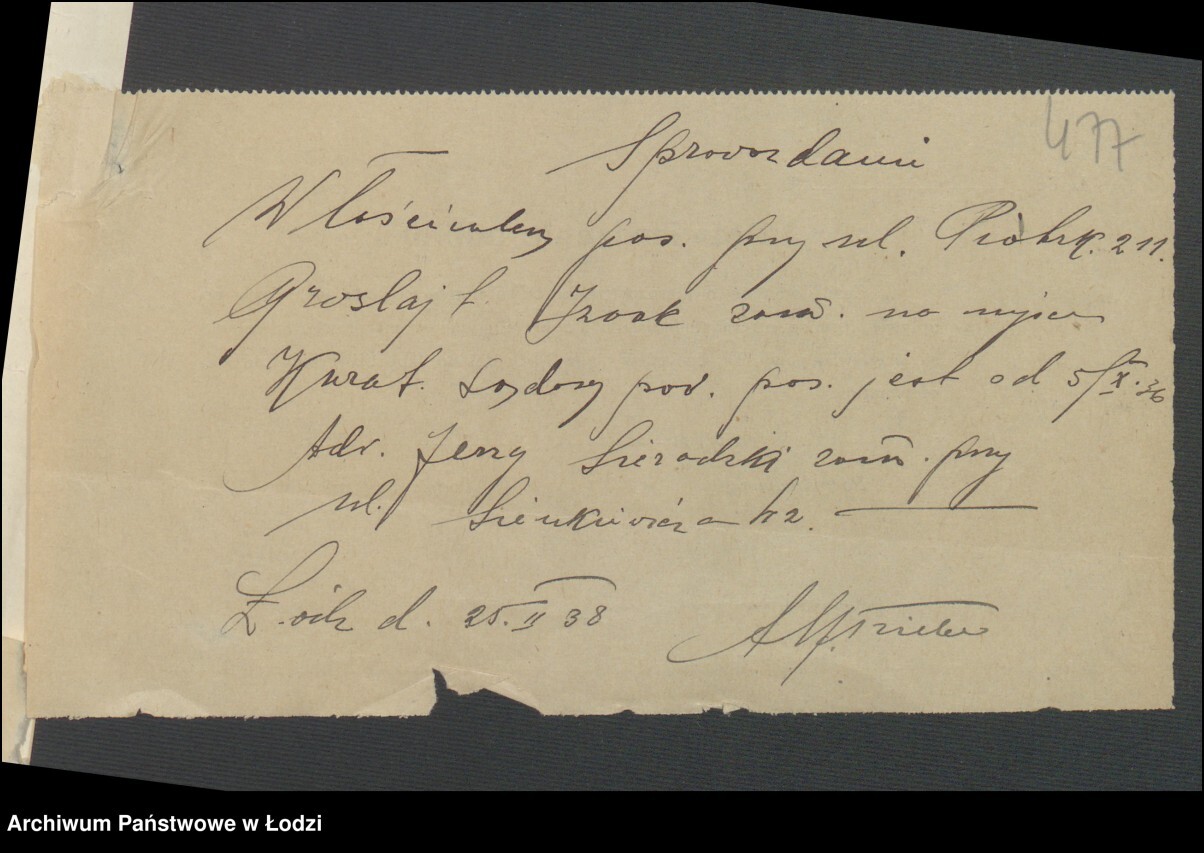 477
Sprawozdanie
Właścicielem pos. przy ul. Piotrk. 211.
Groslajt Izaak zam. na
Kurat. sądowy pow. pos. jest od 5/X.36
Adv. Jerzy Sieradzki zam. przy
ul. Sienkiewicza 42.
Łódź d. 25.II 38
Archiwum Państwowe w Łodzi